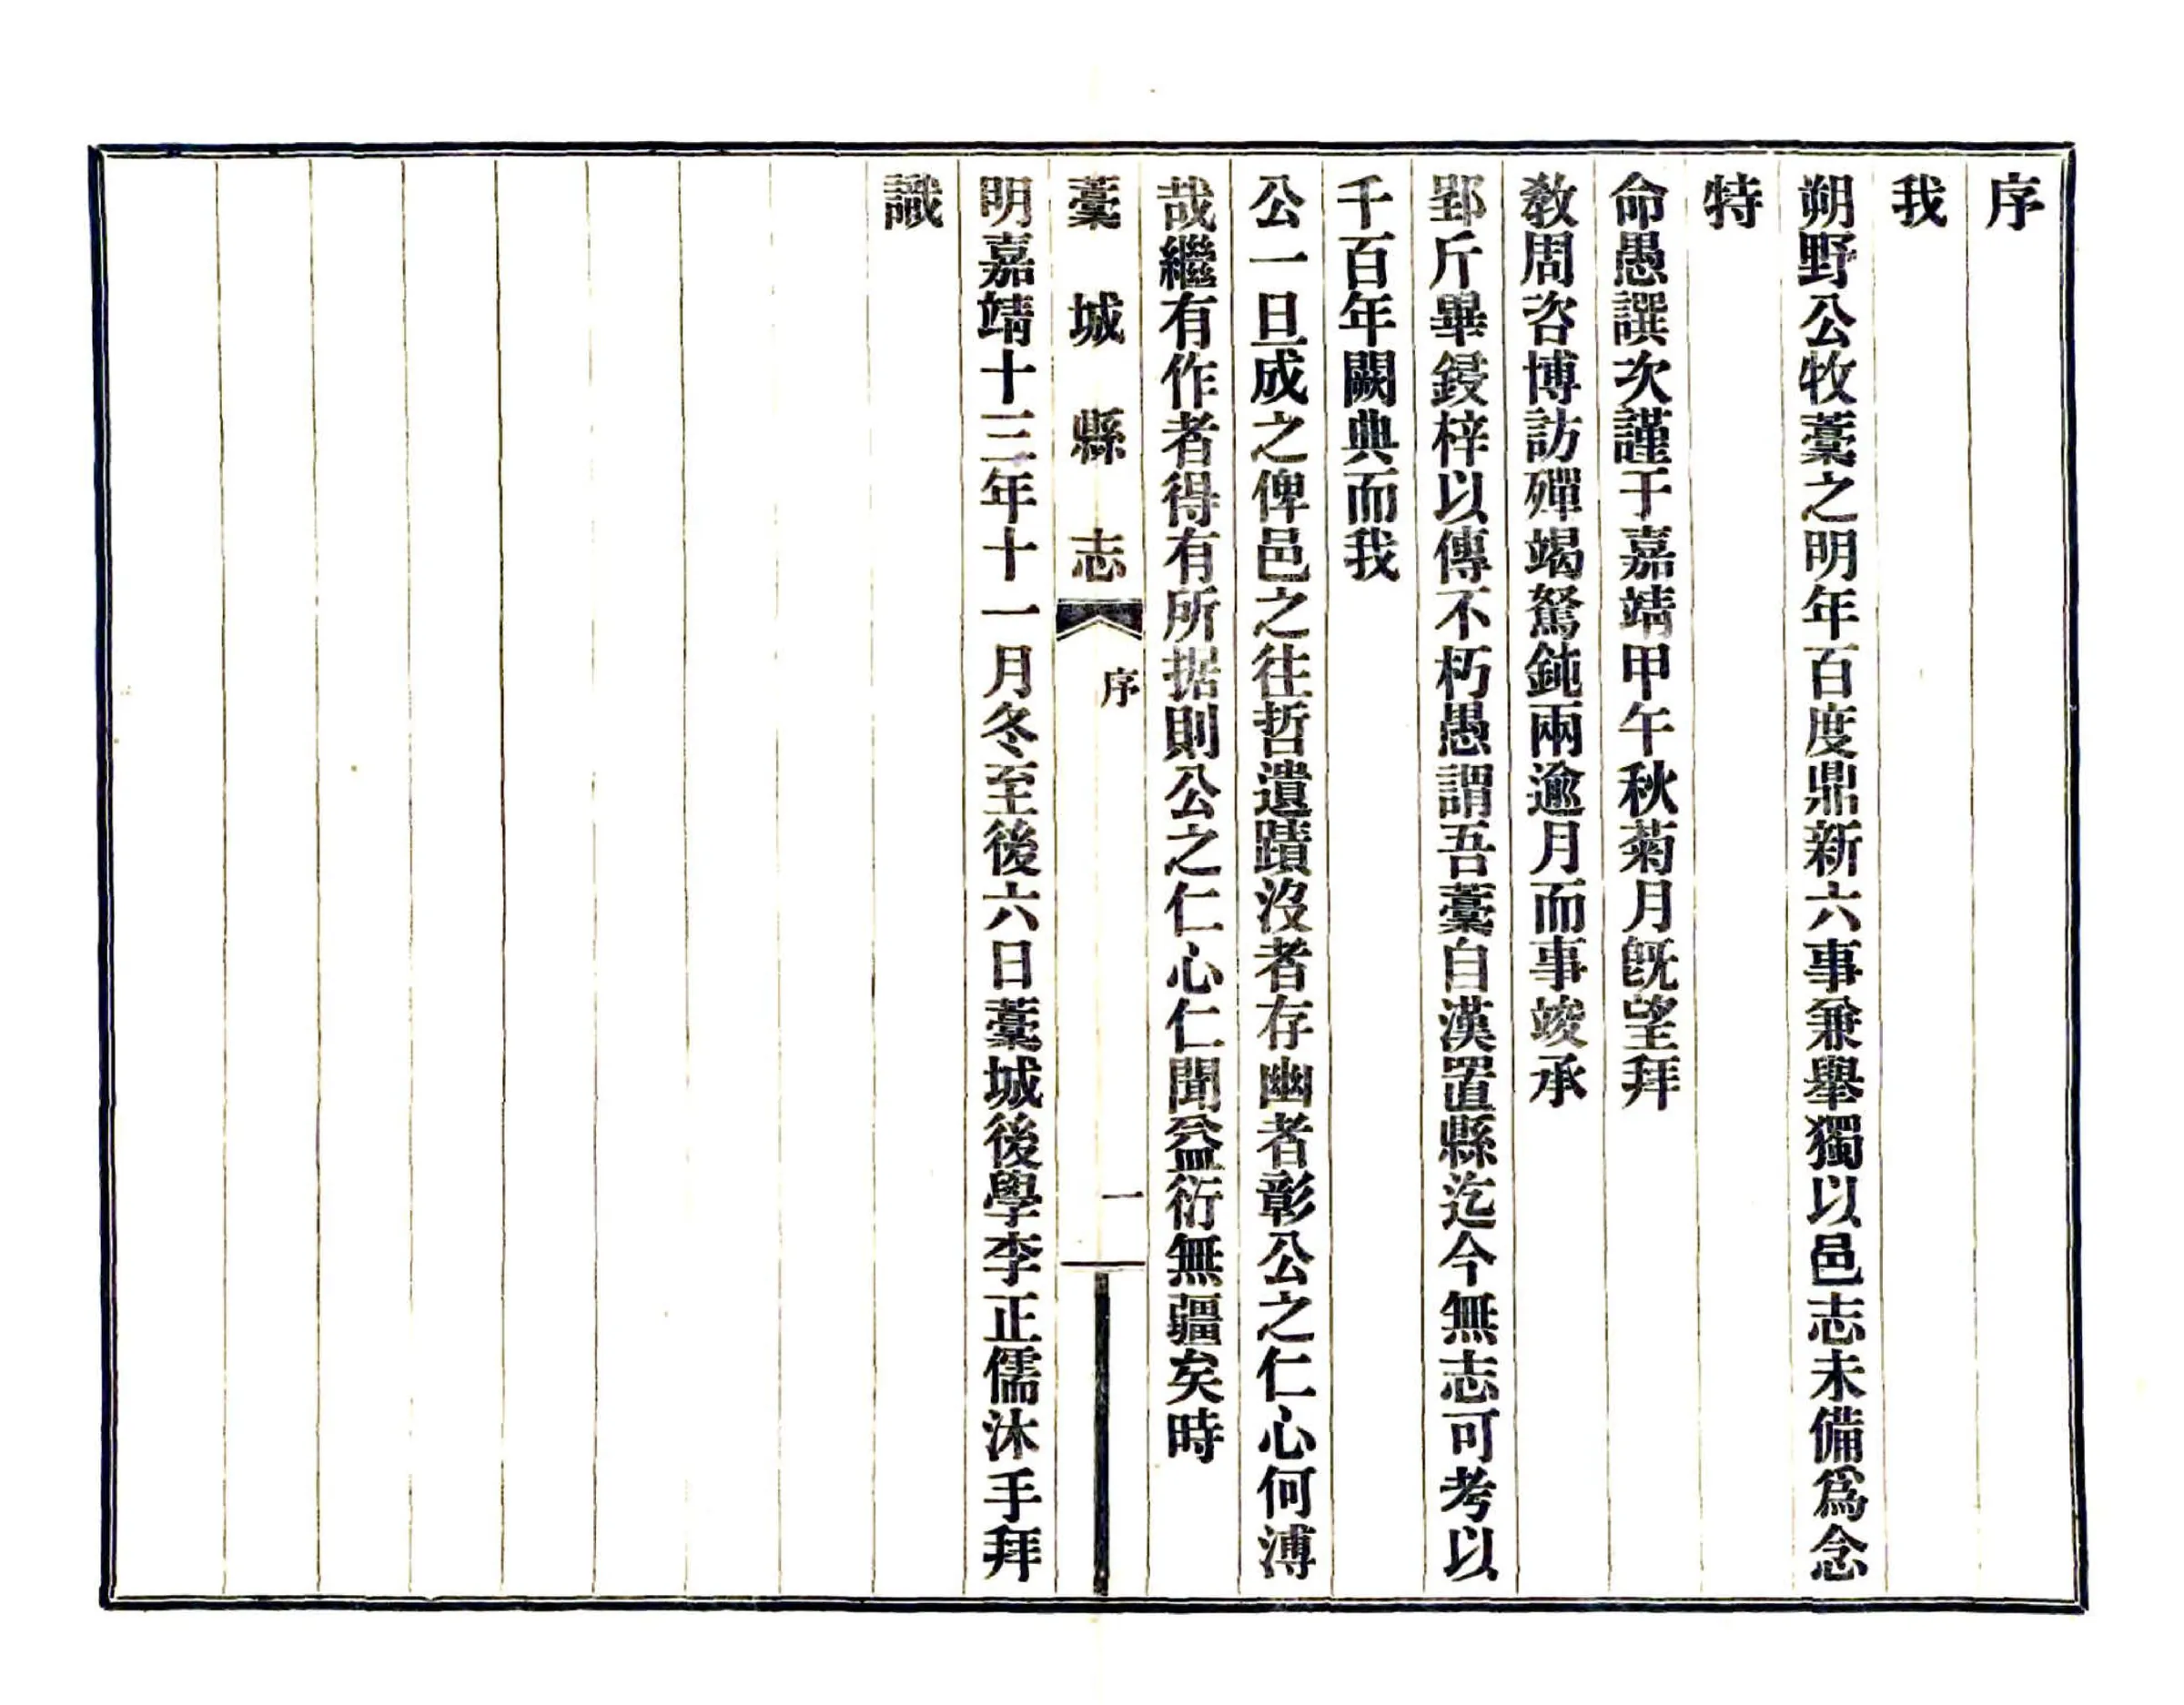 序
我
朔野公牧藁之明年百度鼎新六事兼舉獨以邑志未備爲念
特
命愚譔次謹于嘉靖甲午秋菊月旣望拜
敎周咨博訪殫竭駑鈍兩逾月而事竣承
郢斤畢鋟梓以傳不朽愚謂吾藁自漢置縣迄今無志可考以
千百年闕典而我
公一旦成之俾邑之往哲遺蹟沒者存幽者彰公之仁心何溥
哉繼有作者得有所据則公之仁心仁聞益衍無疆矣時
藁城縣志 序 一
明嘉靖十三年十一月冬至後六日藁城後學李正儒沐手拜
識